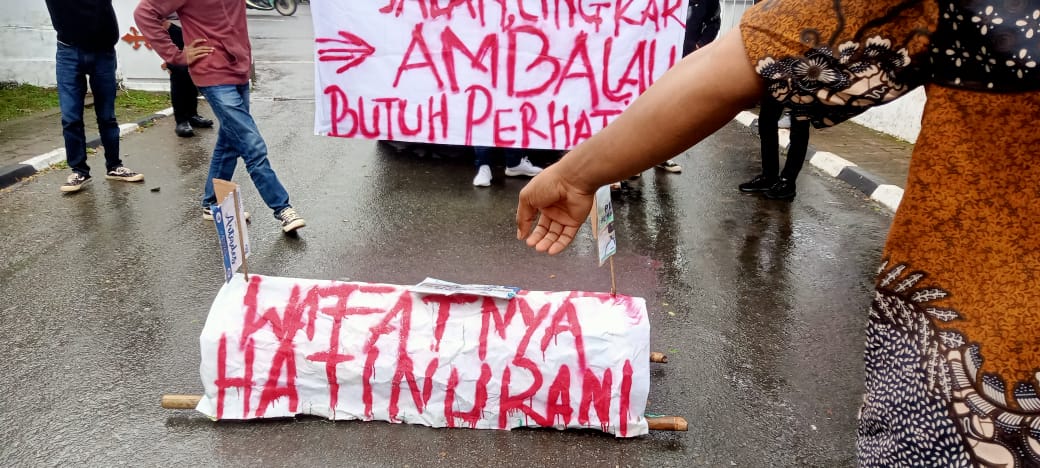 JALAN LINGKAR
AMBALAU
BUTUH PERHATI
WAFATNYA
HATI NURANI